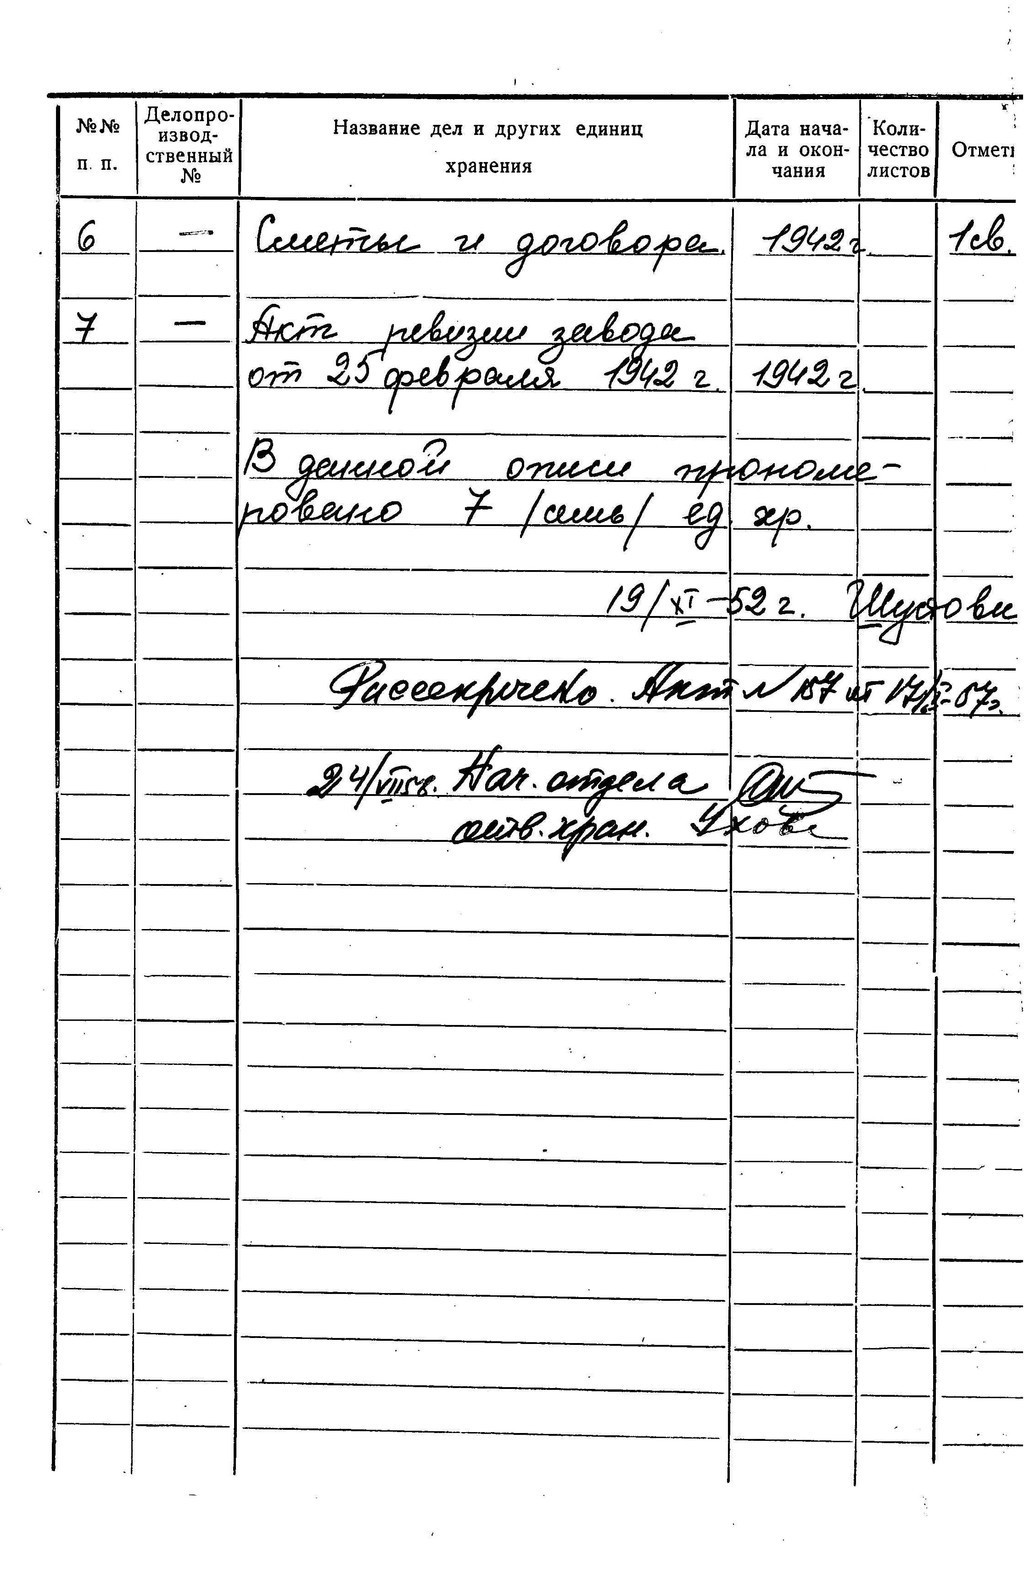 №№ п. п. Делопро-изводственный № Название дел и других единиц хранения Дата нача-ла и окон-чания Коли-чество листов Отмет
6 — Сметы и договора. 1942 г. 1 св.
7 — Акт ревизии завода
от 25 февраля 1942 г. 1942 г.
В данной описи прономе-
ровано 7 /семь/ ед. хр.
19/XI-52 г. Шустова
Рассекречено. Акт № 157 от 17/ 57г.
24/VII 58. Нач. отдела
хран. Ухова